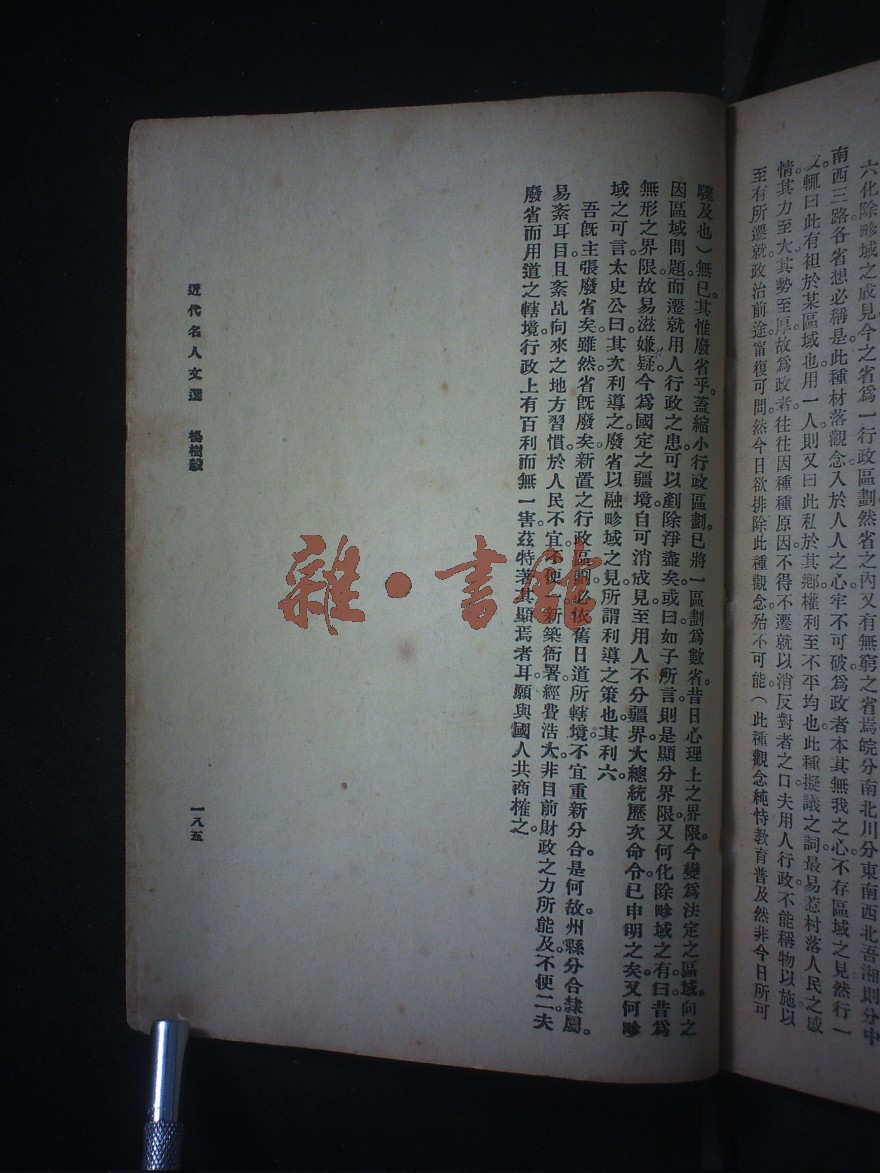 六化除畛域之成見今之省爲一行政區劃然省之內又有無窮之省焉皖分南北川分東南西北吾湘則分中
南西三路各省想必稱是此種村落觀念入於人人之心牢不可破爲政者本其無我之心不存區域之見然行一
輒曰此有袒於某區域也用一人則又曰此私於其鄉權利至不平均也此種擬議之詞最易惹村落人民之感
情其力至大其勢至厚故爲政者往往因種種原因不得不遷就以消反對者之口夫用人行政不能稱物以施以
至有所遷就政治前途甯復可問然今日欲排除此種觀念殆不可能(此種觀念純恃教育普及然非今日所可
驟及也)無已其惟廢省乎。蓋縮小行政區劃。已將一區劃爲數省。昔日心理上之界限。今變爲法定之區域。向之
因區域問題。而遷就用人行政之患。可以剷除淨盡矣。或曰如子所言。則是顯分界限。又何化除畛域之有。曰昔爲
無形之界限。故易滋嫌疑。今爲國定之疆境。自可消成見。至用人不分疆界。大總統歷次命令。已申明之矣。又何畛
域之可言。太史公曰。其次利導之。廢省以融畛域之見。所謂利導之策也。其利六。
吾旣主張廢省矣。雖然。省旣廢矣。新置之行政區劃。必依舊日道所轄境。不宜重新分合。是何故。州縣分合隸屬。
易紊耳目。且紊乱向來之地方習慣。於人民不宜不便一。新築衙署。經費浩大。非目前財政之力所能及。不便二。夫
廢省而用道之轄境。行政上有百利而無一害。茲特著其顯焉者耳。願與國人共商榷之
近代名人文選　楊樹毅
一八五
雜·書館